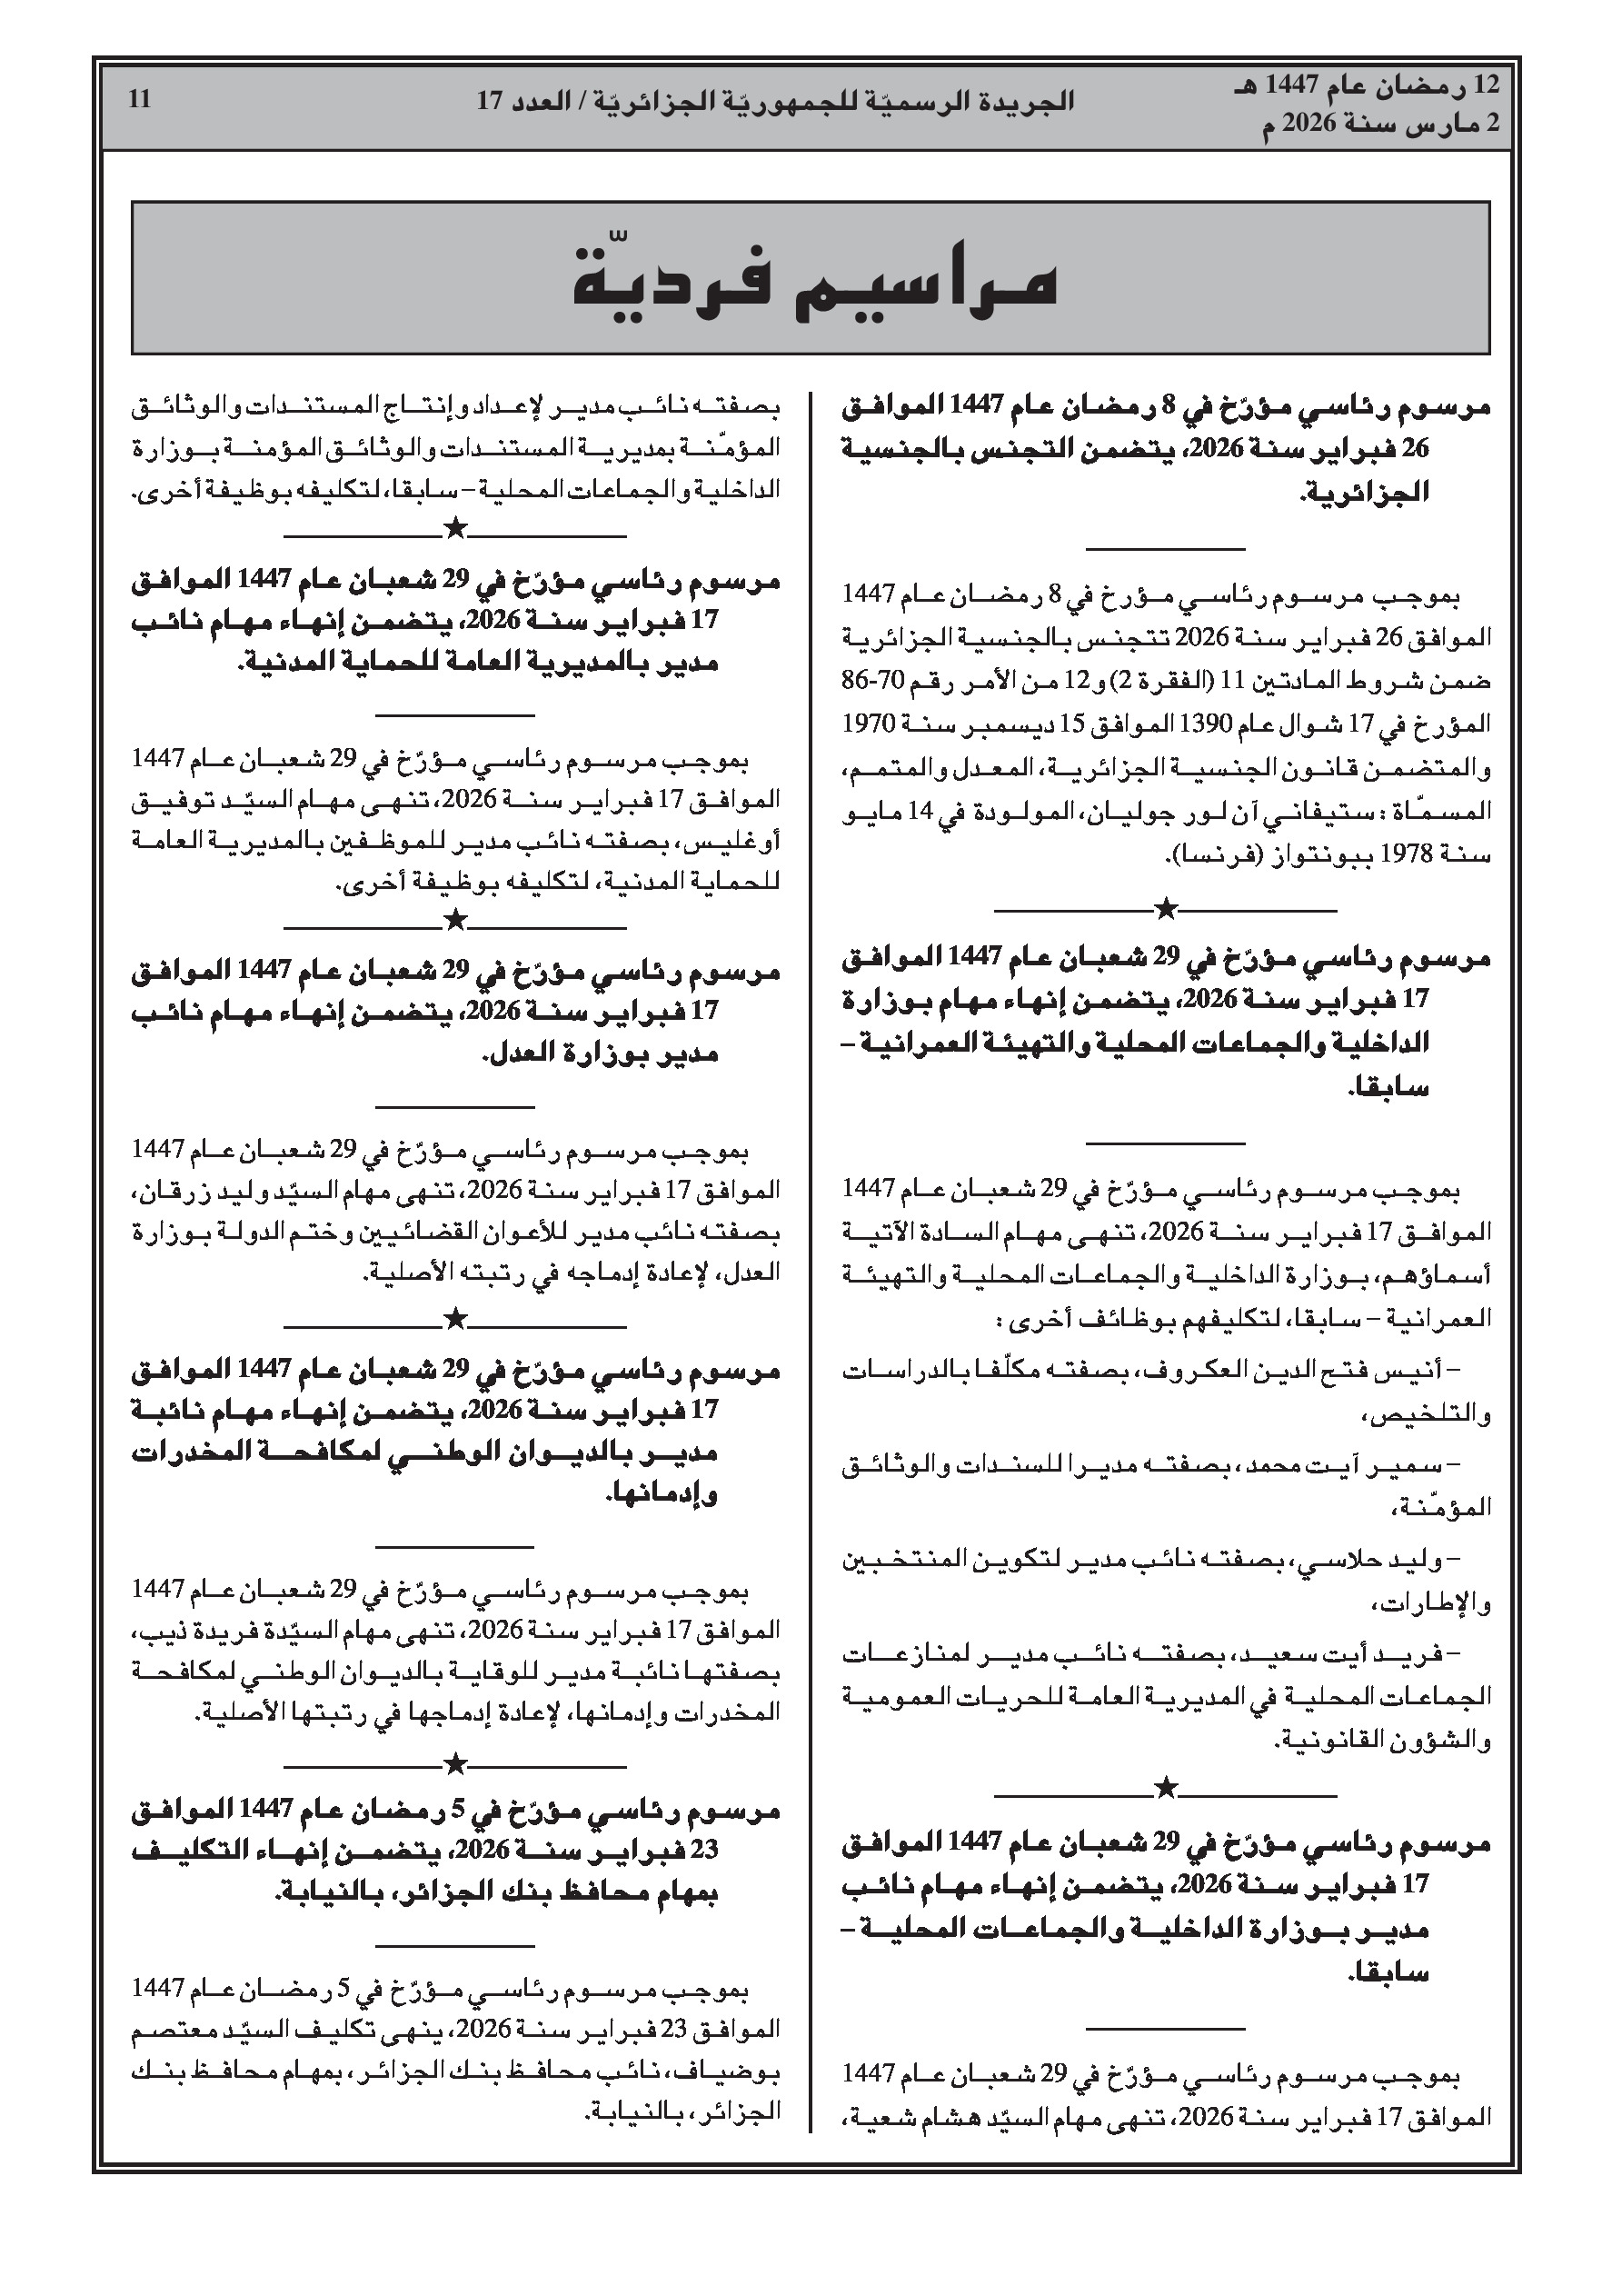 12 رمضان عام 1447 هـ
2 مارس سنة 2026 م
الجريدة الرسميّة للجمهوريّة الجزائريّة / العدد 17
11
مراسيم فرديّة
مرسوم رئاسي مؤرّخ في 8 رمضان عام 1447 الموافق
26 فبراير سنة 2026، يتضمن التجنس بالجنسية
الجزائرية.
بموجب مرسوم رئاسي مؤرخ في 8 رمضان عام 1447
الموافق 26 فبراير سنة 2026 تتجنس بالجنسية الجزائرية
ضمن شروط المادتين 11 (الفقرة 2) و12 من الأمر رقم 70-86
المؤرخ في 17 شوال عام 1390 الموافق 15 ديسمبر سنة 1970
والمتضمن قانون الجنسية الجزائرية، المعدل والمتمم،
المسمّاة : ستيفاني آن لور جوليان، المولودة في 14 مايو
سنة 1978 ببونتواز (فرنسا).
مرسوم رئاسي مؤرّخ في 29 شعبان عام 1447 الموافق
17 فبراير سنة 2026، يتضمن إنهاء مهام بوزارة
الداخلية والجماعات المحلية والتهيئة العمرانية –
سابقا.
بموجب مرسوم رئاسي مؤرّخ في 29 شعبان عام 1447
الموافق 17 فبراير سنة 2026، تنهى مهام السادة الآتية
أسماؤهم، بوزارة الداخلية والجماعات المحلية والتهيئة
العمرانية – سابقا، لتكليفهم بوظائف أخرى :
– أنيس فتح الدين العكروف، بصفته مكلّفا بالدراسات
والتلخيص،
– سمير آيت محمد، بصفته مديرا للسندات والوثائق
المؤمّنة،
– وليد حلاسي، بصفته نائب مدير لتكوين المنتخبين
والإطارات،
– فريد أيت سعيد، بصفته نائب مدير لمنازعات
الجماعات المحلية في المديرية العامة للحريات العمومية
والشؤون القانونية.
مرسوم رئاسي مؤرّخ في 29 شعبان عام 1447 الموافق
17 فبراير سنة 2026، يتضمن إنهاء مهام نائب
مدير بوزارة الداخلية والجماعات المحلية –
سابقا.
بموجب مرسوم رئاسي مؤرّخ في 29 شعبان عام 1447
الموافق 17 فبراير سنة 2026، تنهى مهام السيّد هشام شعية،
بصفته نائب مدير لإعداد وإنتاج المستندات والوثائق
المؤمّنة بمديرية المستندات والوثائق المؤمنة بوزارة
الداخلية والجماعات المحلية – سابقا، لتكليفه بوظيفة أخرى.
مرسوم رئاسي مؤرّخ في 29 شعبان عام 1447 الموافق
17 فبراير سنة 2026، يتضمن إنهاء مهام نائب
مدير بالمديرية العامة للحماية المدنية.
بموجب مرسوم رئاسي مؤرّخ في 29 شعبان عام 1447
الموافق 17 فبراير سنة 2026، تنهى مهام السيّد توفيق
أوغليس، بصفته نائب مدير للموظفين بالمديرية العامة
للحماية المدنية، لتكليفه بوظيفة أخرى.
مرسوم رئاسي مؤرّخ في 29 شعبان عام 1447 الموافق
17 فبراير سنة 2026، يتضمن إنهاء مهام نائب
مدير بوزارة العدل.
بموجب مرسوم رئاسي مؤرّخ في 29 شعبان عام 1447
الموافق 17 فبراير سنة 2026، تنهى مهام السيّد وليد زرقان،
بصفته نائب مدير للأعوان القضائيين وختم الدولة بوزارة
العدل، لإعادة إدماجه في رتبته الأصلية.
مرسوم رئاسي مؤرّخ في 29 شعبان عام 1447 الموافق
17 فبراير سنة 2026، يتضمن إنهاء مهام نائبة
مدير بالديوان الوطني لمكافحة المخدرات
وإدمانها.
بموجب مرسوم رئاسي مؤرّخ في 29 شعبان عام 1447
الموافق 17 فبراير سنة 2026، تنهى مهام السيّدة فريدة ذيب،
بصفتها نائبة مدير للوقاية بالديوان الوطني لمكافحة
المخدرات وإدمانها، لإعادة إدماجها في رتبتها الأصلية.
مرسوم رئاسي مؤرّخ في 5 رمضان عام 1447 الموافق
23 فبراير سنة 2026، يتضمن إنهاء التكليف
بمهام محافظ بنك الجزائر، بالنيابة.
بموجب مرسوم رئاسي مؤرّخ في 5 رمضان عام 1447
الموافق 23 فبراير سنة 2026، ينهى تكليف السيّد معتصم
بوضياف، نائب محافظ بنك الجزائر، بمهام محافظ بنك
الجزائر، بالنيابة.